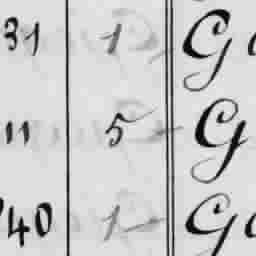 31 1 G
11 5 G
40 1 G